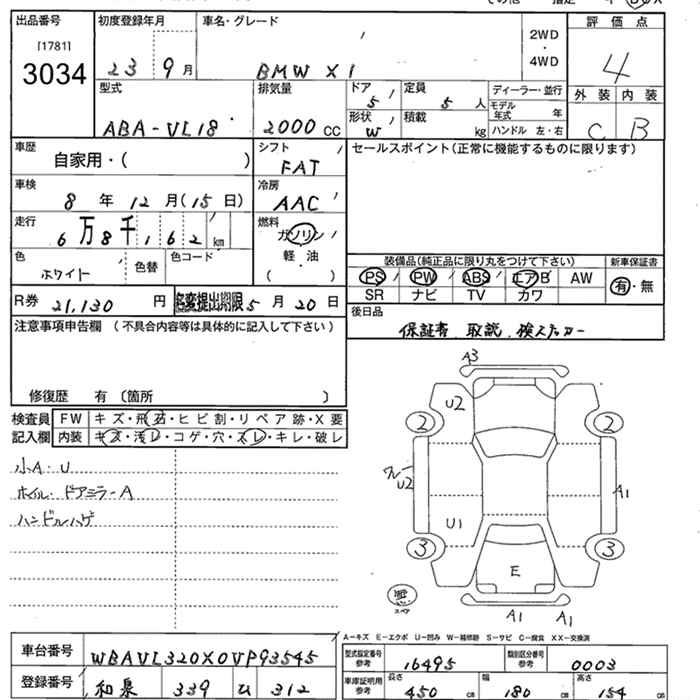 出品番号 初度登録年月 車名・グレード 評価点
[1781] 2WD・4WD
3034 23 9月 BMW X1 4
型式 排気量 ドア 5 定員 5人 ディーラー・並行 外装 内装
ABA-VL18 2000CC 形状 W 積載 kg モデル年式 年 C B
ハンドル 左・右
車歴 シフト セールスポイント(正常に機能するものに限ります)
自家用・( ) FAT
車検 冷房
8年 12月(15日) AAC
走行 燃料
6万8千162km ガソリン
色 色替 色コード 軽・油 装備品(純正品に限り丸をつけて下さい) 新車保証書
ホワイト ( ) PS PW ABS エアB AW 有・無
SR ナビ TV カワ
R券 21,130円 名変提出期限 5月20日 後日品
注意事項申告欄 (不具合内容等は具体的に記入して下さい) 保証書 取説 検ステッカー
修復歴 有 〔箇所 〕
検査員 FW キズ・飛石・ヒビ割・リペア跡・X要
記入欄 内装 キズ・浅レ・コゲ・穴・スレ・キレ・破レ
小A・U
ホイル・ドアミラーA
ハンドルハゲ
A3
U2
2 2
U2 A1
U1
3 3
E
スペア
A1 A1
A-キズ E-エクボ U-凹み W-補修跡 S-サビ C-腐食 XX-交換済
車台番号 WBAVL320X0VP93545 型式指定番号 参考 16495 類別区分番号 参考 0003
登録番号 和泉 339 ひ 312 車庫証明用 参考 長さ 450CM 幅 180CM 高さ 154CM